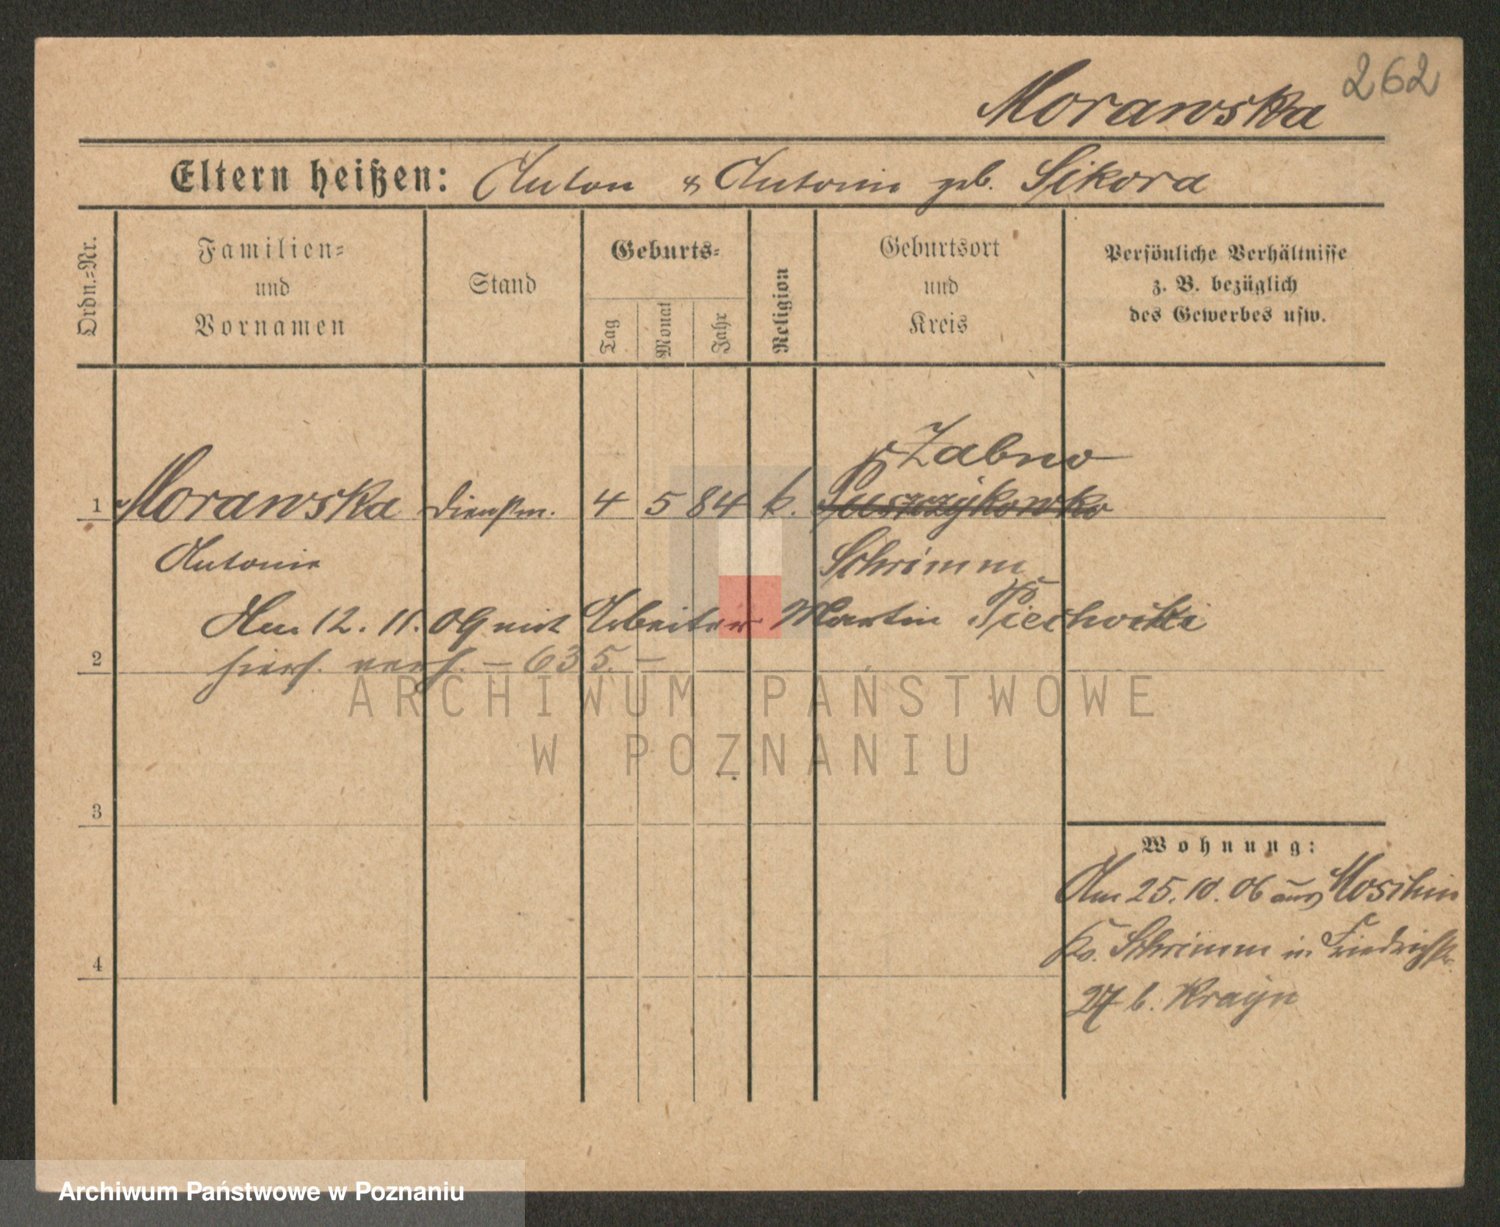 262
Morawska
Eltern heißen: Anton & Antonie geb. Sikora
Ordn.-Nr.
Familien-
und
Vornamen
Stand
Geburts-
Tag
Monat
Jahr
Religion
Geburtsort
und
Kreis
Persönliche Verhältnisse
z. B. bezüglich
des Gewerbes usw.
Zabno
1 Morawska Dienstm. 4 5 84 k. Puszczykowko
Antonie Schrimm
Am 12. 11. 09 mit Arbeiter Martin Piechocki
2 hiers. verh. – 635. –
ARCHIWUM PAŃSTWOWE
W POZNANIU
3
Wohnung:
Am 25. 10. 06 aus Moschin
Kr. Schrimm in Friedrichstr.
4
27 b. Krayn
Archiwum Państwowe w Poznaniu